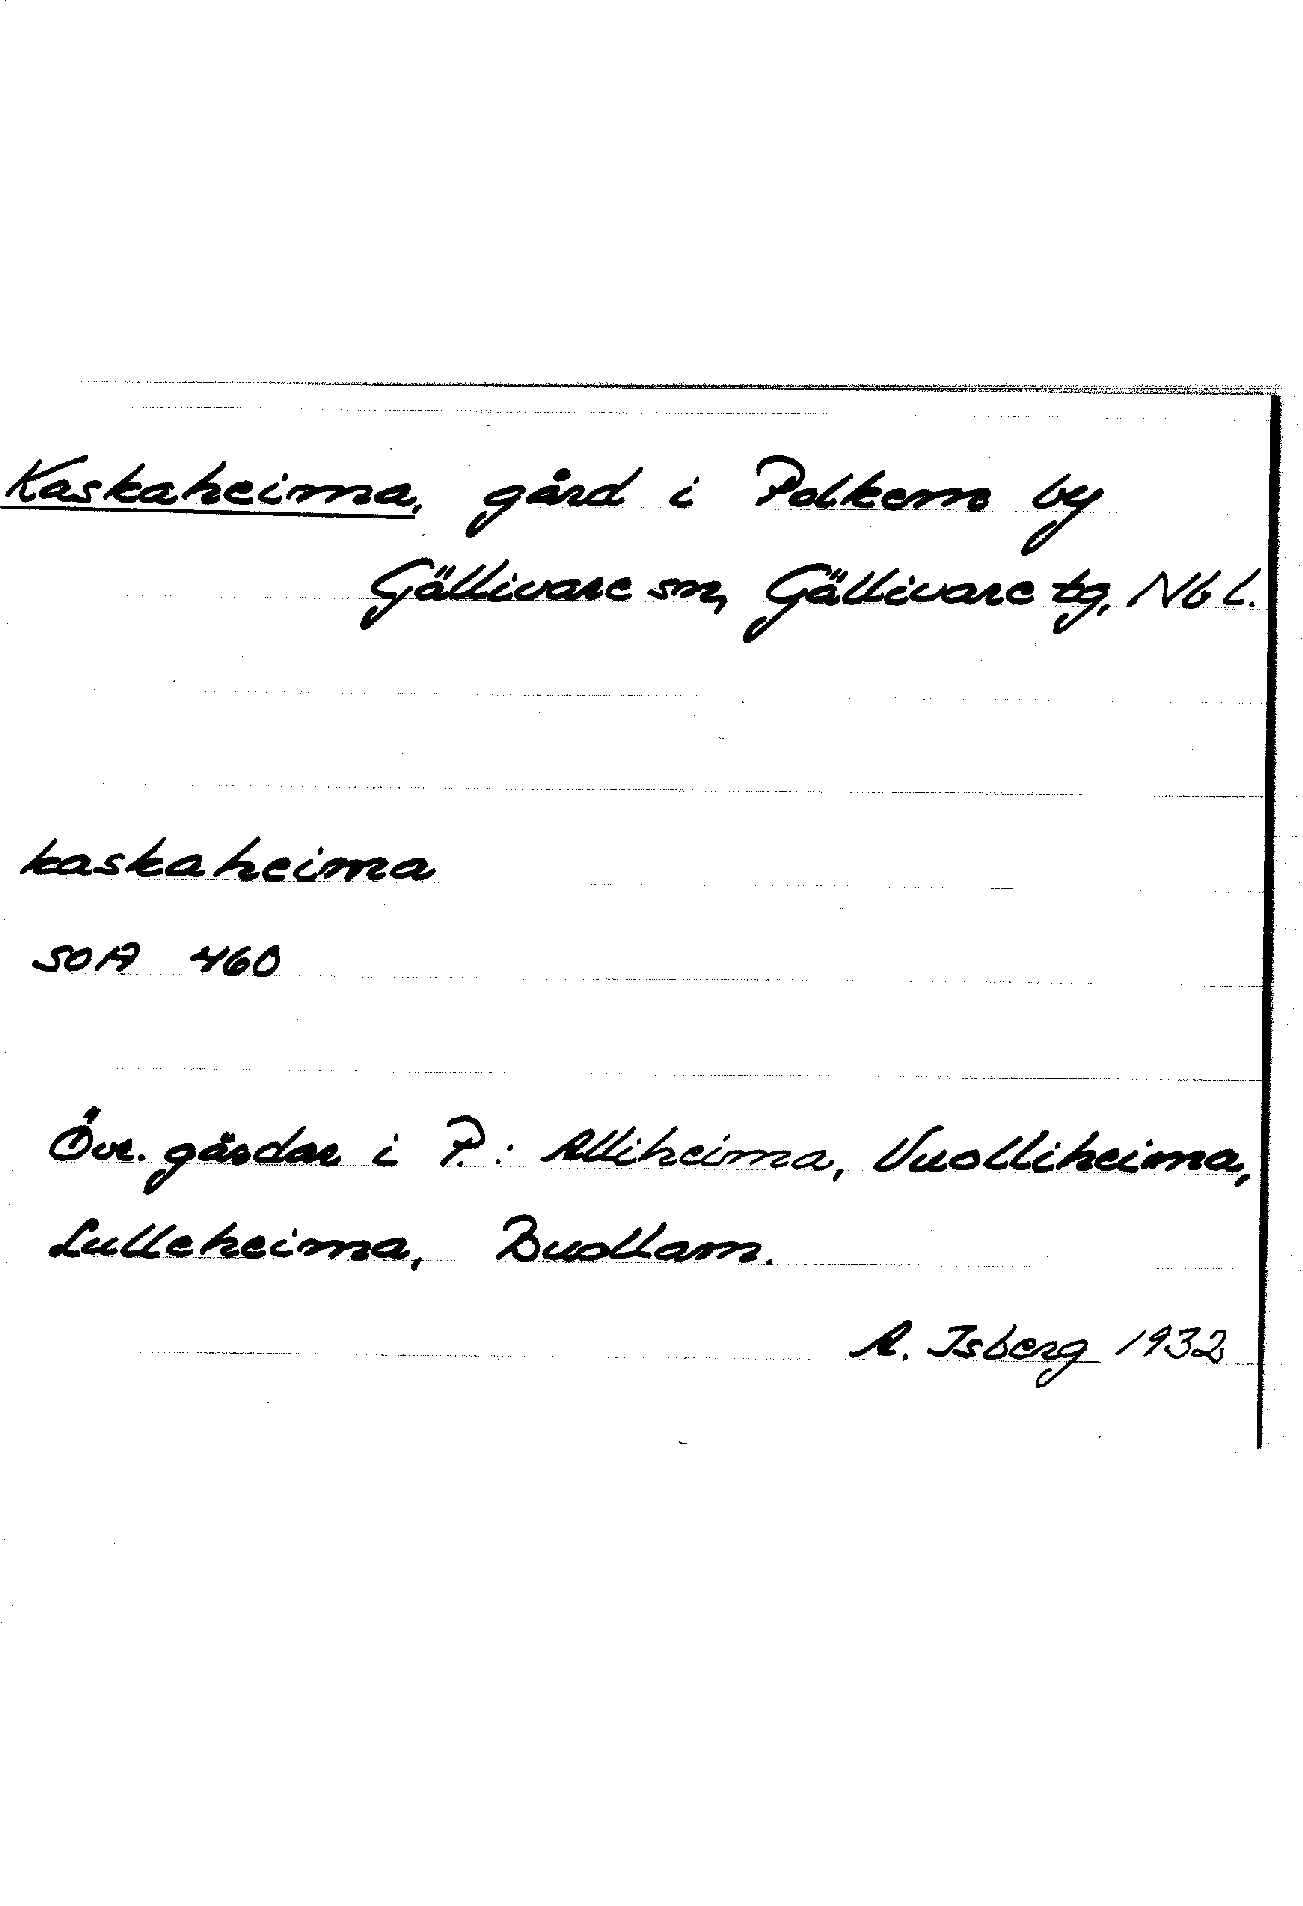 Kaskaheima, gård i Polkem by
Gällivare sn, Gällivare tg, Nb l.
kaskaheima
SOA 460
Övr. gårdar i P.: Alliheima, Vuolliheima,
Lulleheima, Buollam.
A. Isberg 1932